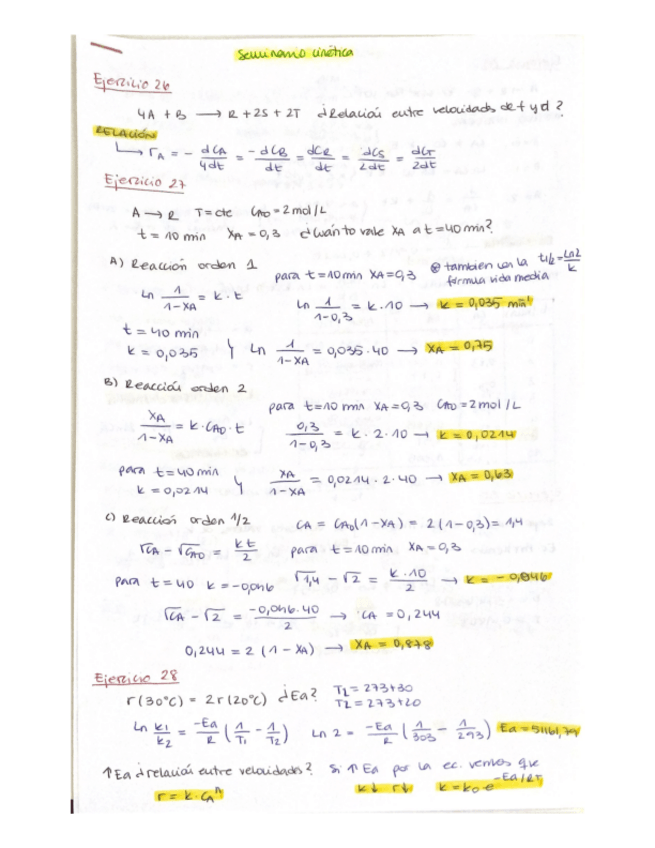 Seminario cinética
Ejercicio 26
4A + B → R + 2S + 2T ¿Relación entre velocidades de f y d?
RELACIÓN
↳ rA = - dCA/4dt = -dCB/dt = dCR/dt = dCS/2dt = dCT/2dt
Ejercicio 27
A → R T = cte CA0 = 2 mol/L
t = 10 min XA = 0,3 ¿Cuánto vale XA a t = 40 min?
A) Reacción orden 1
para t = 10 min XA = 0,3 ⊛ también con la t1/2 = Ln2/k
fórmula vida media
Ln 1/1-XA = k · t Ln 1/1-0,3 = k · 10 → k = 0,035 min⁻¹
t = 40 min
k = 0,035 } Ln 1/1-XA = 0,035 · 40 → XA = 0,75
B) Reacción orden 2
para t = 10 min XA = 0,3 CA0 = 2 mol/L
XA/1-XA = k · CA0 · t 0,3/1-0,3 = k · 2 · 10 → k = 0,0214
para t = 40 min
k = 0,0214 } XA/1-XA = 0,0214 · 2 · 40 → XA = 0,63
C) Reacción orden 1/2 CA = CA0(1-XA) = 2(1-0,3) = 1,4
√CA - √CA0 = kt/2 para t = 10 min XA = 0,3
para t = 40 k = -0,046 √1,4 - √2 = k · 10/2 → k = -0,046
√CA - √2 = -0,046 · 40/2 → CA = 0,244
0,244 = 2 (1 - XA) → XA = 0,878
Ejercicio 28
r(30°C) = 2r(20°C) ¿Ea? T1 = 273+30
T2 = 273+20
Ln k1/k2 = -Ea/R (1/T1 - 1/T2) Ln 2 = -Ea/R (1/303 - 1/293) Ea = 51161,
↑Ea ¿relación entre velocidades? Si ↑Ea por la ec. vemos que
r = k · CAⁿ k↓ r↓ k = k0 · e^-Ea/RT